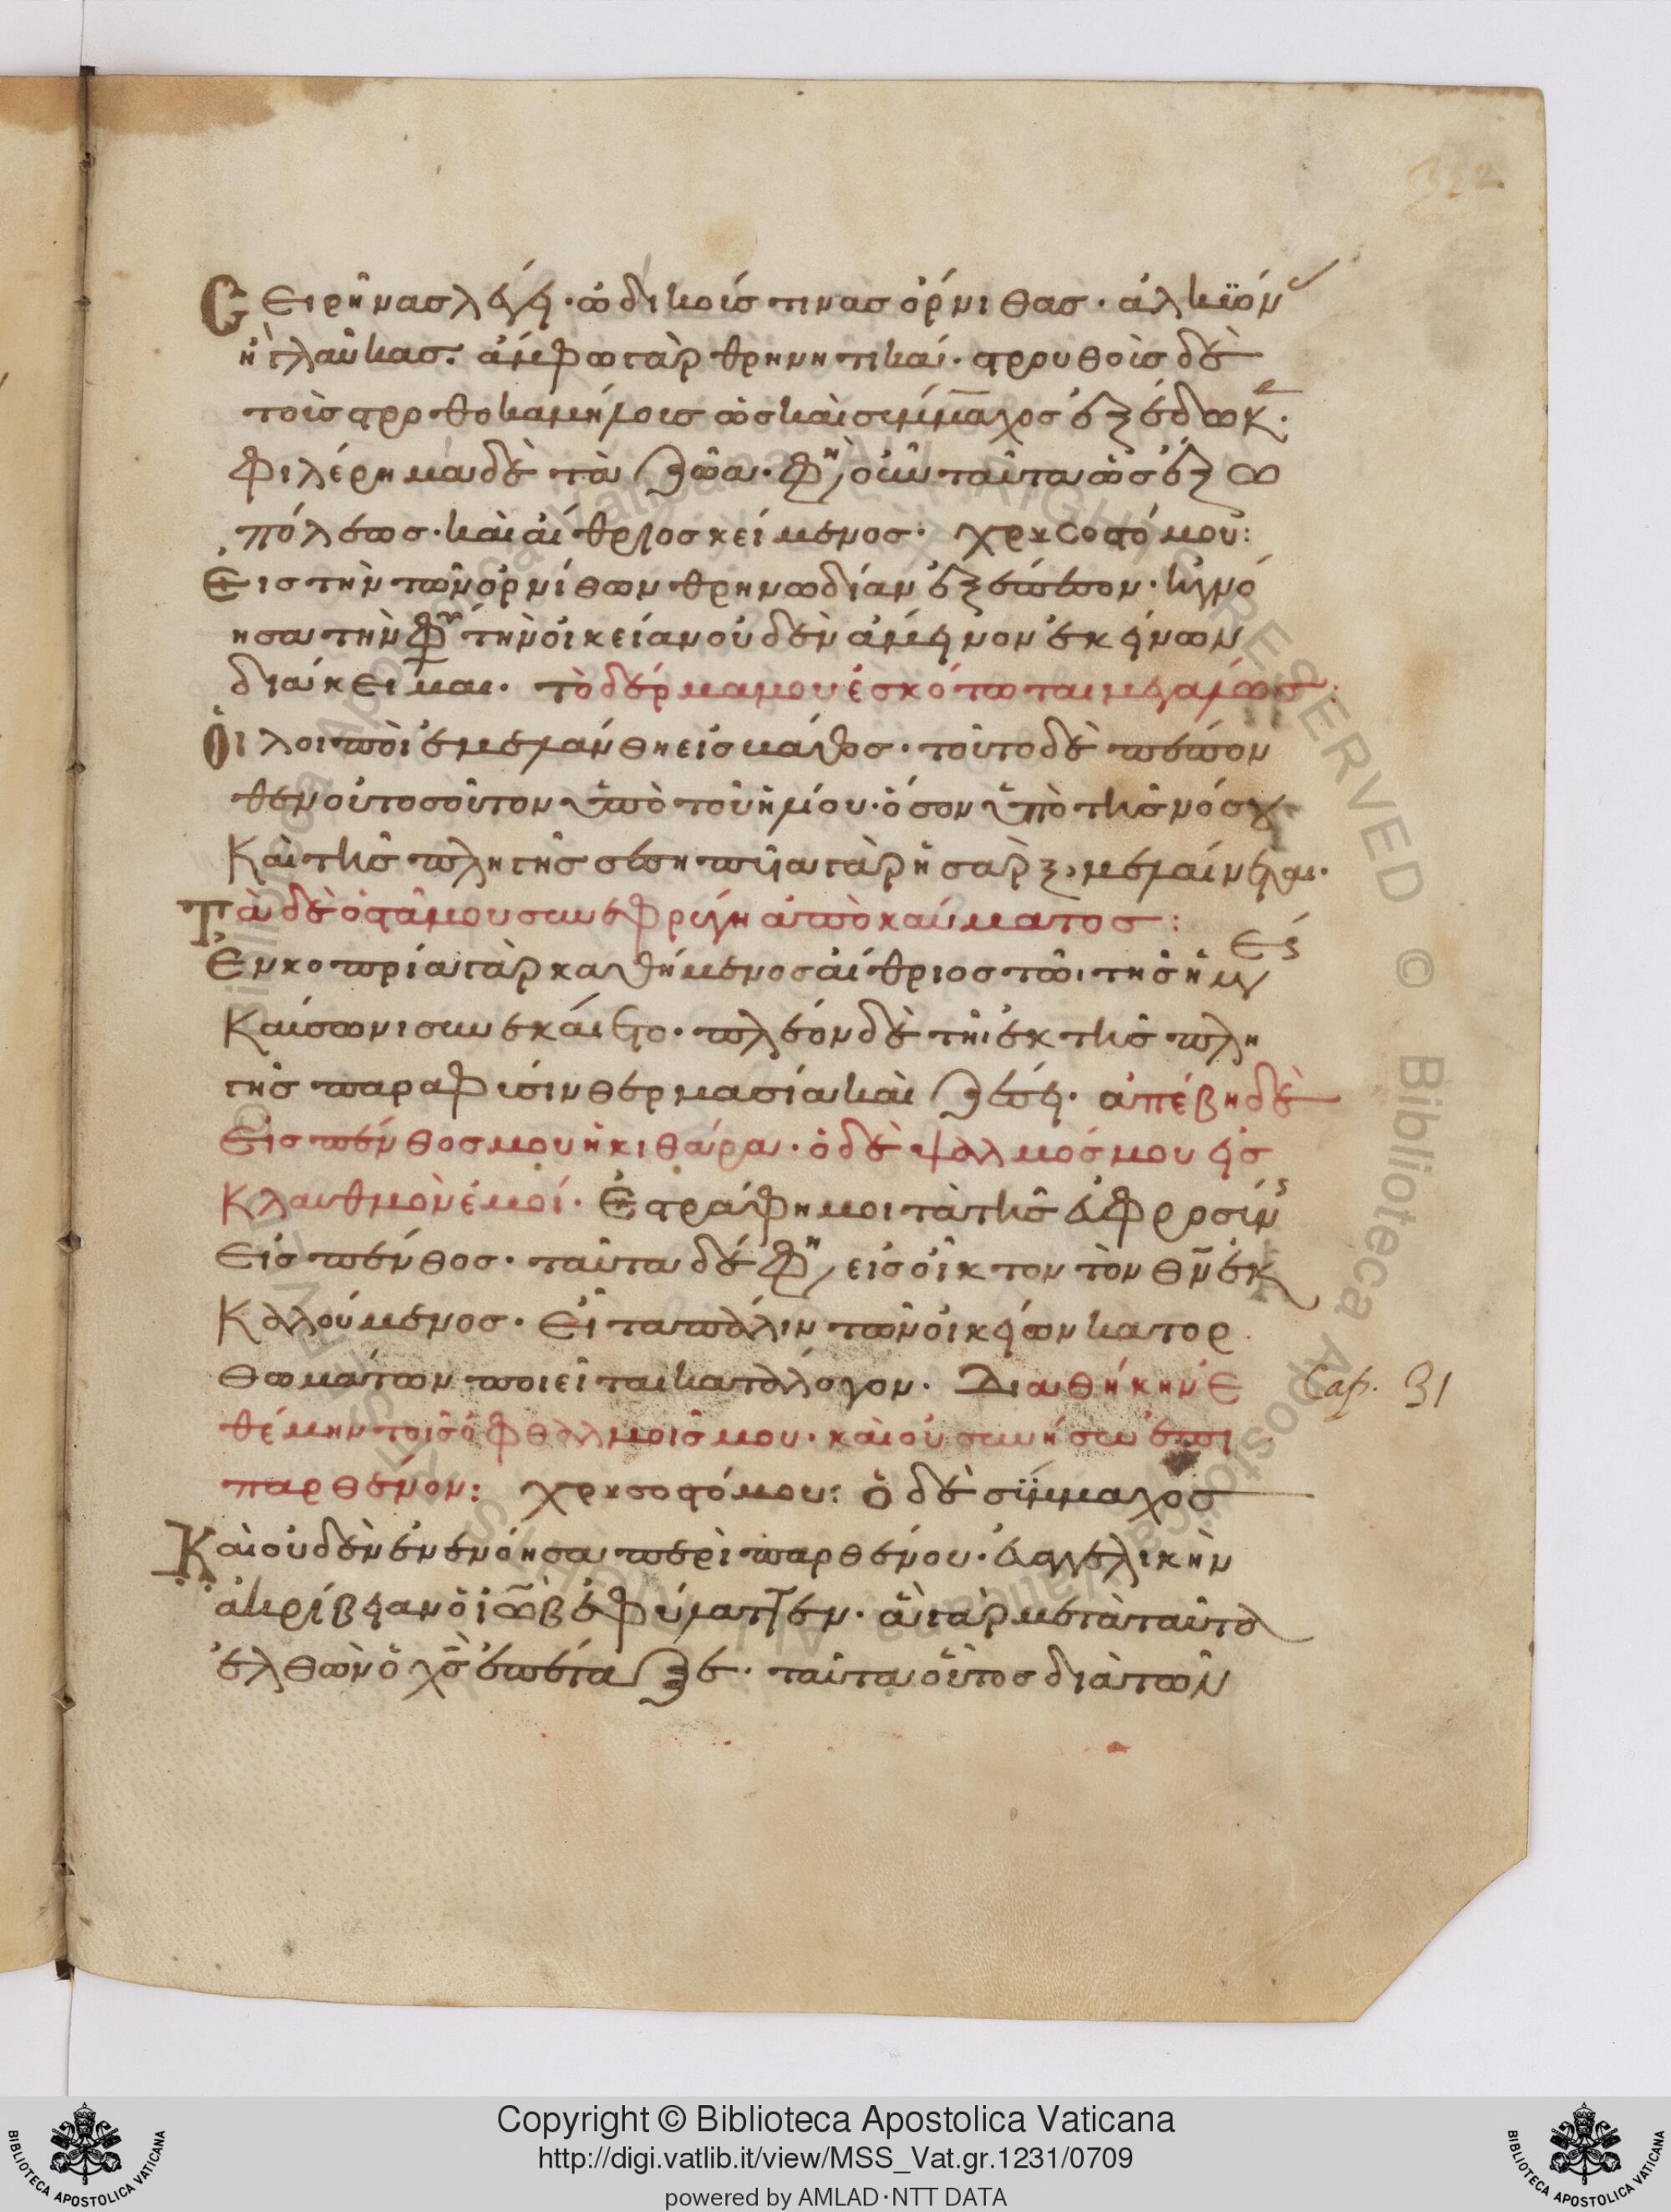 352
Σειρῆνας λέγει· ᾠδικούς τινας ὄρνιθας· ἀλκυόν
ἢ γλαῦκας· ἄμφω γὰρ θρηνητικαί· στρουθοῖς δὲ
τοῖς στρουθοκαμήλοις ὡς καὶ σύμμαχος ἐξέδωκε·
φιλέρημα δὲ τὰ ζῶα· φη οὖν ταῦτα ὡς ἔξω
πόλεως· καὶ αἴθριος κείμενος· χρυσοστόμου:
Εἰς τὴν τῶν ὀρνίθων θρηνωδίαν ἐξέπεσον·
ησα τὴν φυ τὴν οἰκείαν οὐδὲν ἄμεινον ἐκείνων
διάκειμαι· τὸ δέρμα μου ἐσκότωται μεγάλως:
Οἱ λοιποὶ ἐμελάνθη εἰς μάθος· τοῦτο δὲ πεπον
θεν οὐ τοσοῦτον ὑπὸ τοῦ ἡλίου· ὅσον ὑπὸ τῆς νόσου
Καὶ τῆς πληγῆς σέσηπυῖα γὰρ ἡ σὰρξ, μελαίνεται·
Τὰ δὲ ὀστᾶ μου συνεφρύγη ἀπὸ καύματος:
Ἐν κοπρία γὰρ καθήμενος αἴθριος τῶι τῆς ἡμέρας
Καύσωνι συνεκαίετο· πλέον δὲ τῆι ἐκ τῆς πλη
γῆς παραφύσιν θερμασία καὶ ζέσει· ἀπέβη δὲ
Εἰς πένθος μου ἡ κιθάρα· ὁ δὲ ψαλμός μου εἰς
Κλαυθμὸν ἐμοί· Ἐστράφη μοι τὰ τῆς εὐφροσύνης
Εἰς πένθος· ταῦτα δέ φη, εἰς οἶκτον τὸν θν ἐκ
Καλούμενος· Εἶτα πάλιν τῶν οἰκείων κατορ
θωμάτων ποιεῖται κατάλογον· Διαθήκην ἐ
θέμην τοῖς ὀφθαλμοῖς μου· καὶ οὐ συνήσω ἐπὶ
παρθένον: χρυσοστόμου: ὁ δὲ σύμμαχος
Καὶ οὐδὲν ἐνενόησα περὶ παρθένου· εὐαγγελικὴν
ἀκρίβειαν ὁ ἰὼβ ἐφύλαττεν· ἃ γὰρ μετὰ ταῦτα
ἐλθὼν ὁ χς ἐπέταξε· ταῦτα οὗτος διὰ τῶν
Cap. 31
Copyright © Biblioteca Apostolica Vaticana
http://digi.vatlib.it/view/MSS_Vat.gr.1231/0709
powered by AMLAD·NTT DATA
BIBLIOTECA APOSTOLICA VATICANA
BIBLIOTECA APOSTOLICA VATICANA